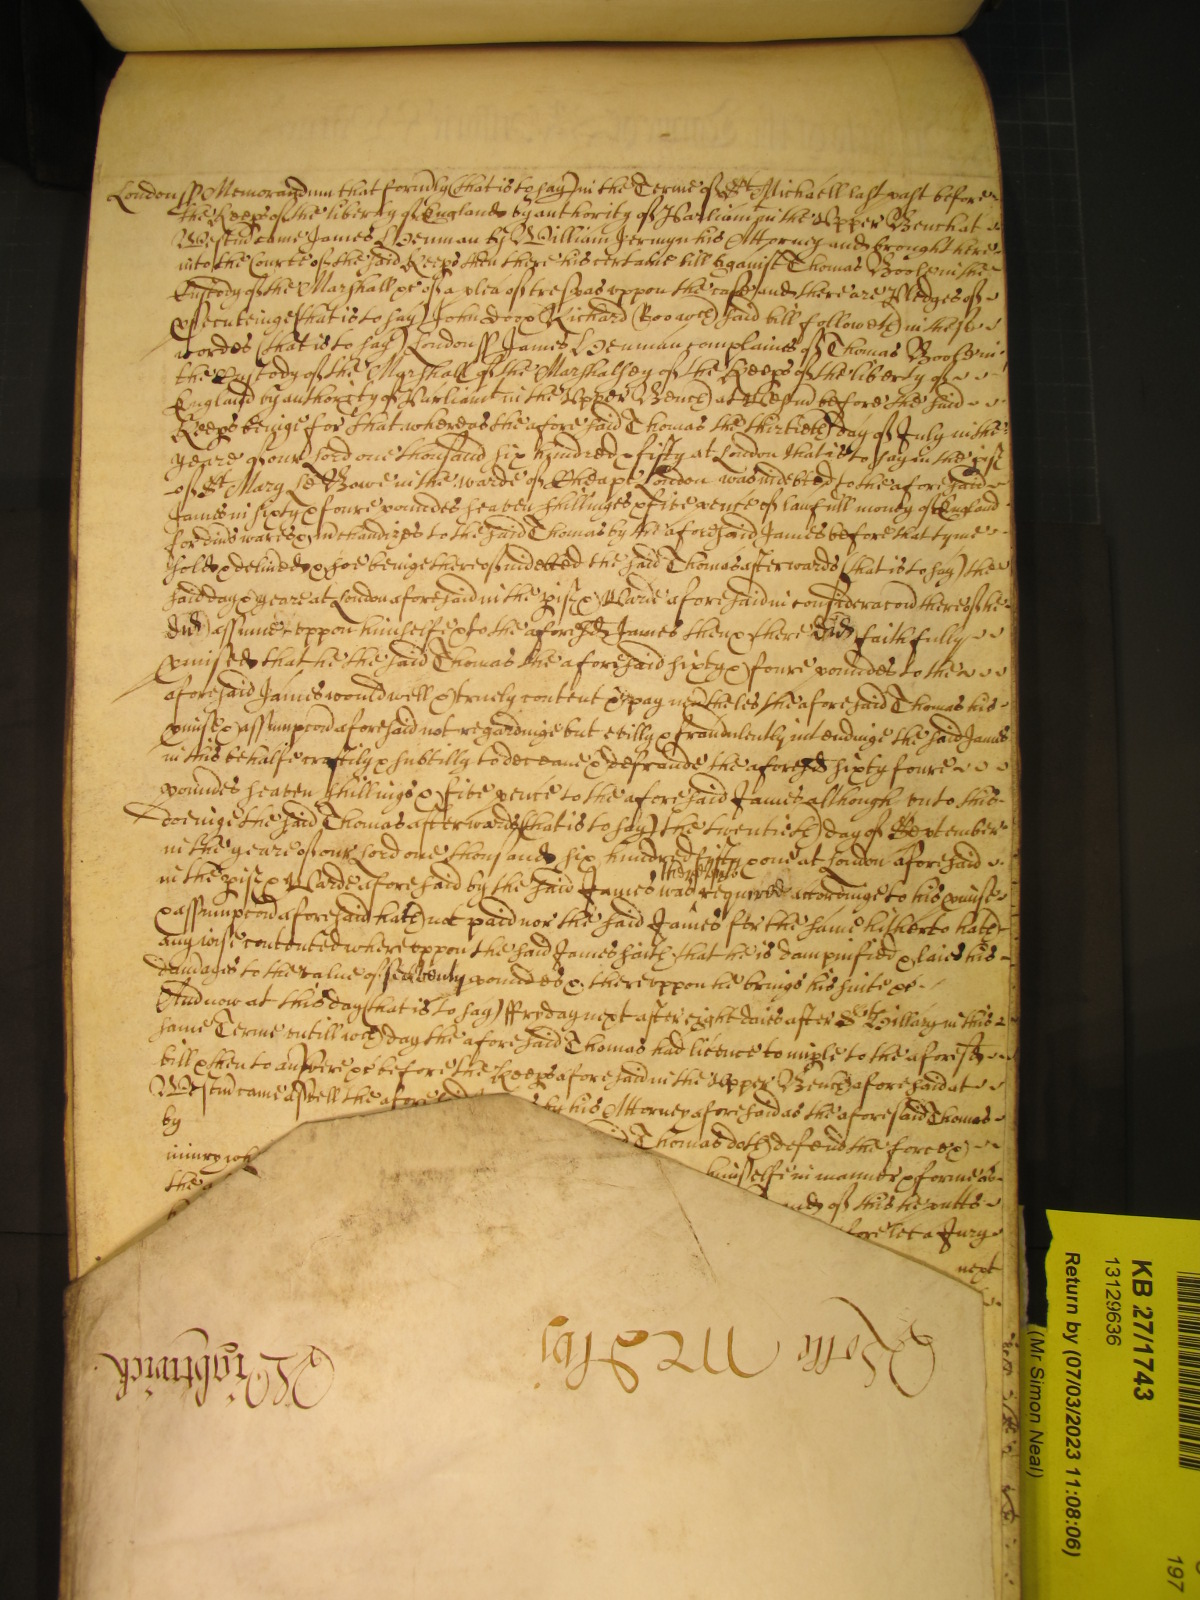 London ss Memorandum that formerly (that is to say) in the Terme of St Michaell last past before
the Keeps of the liberty of England by authority of Parliamt in the Upper Bench at
Westm came James Denman by William Jermyn his Attorney and brought here
into the Courte of the said Keeps then there his certaine bill against Thomas in the
Custody of the Marshall &c of a plea of trespas uppon the case and there are Pledges of
psecuteinge (that is to say) John Doo & Richard Roo wch said bill followeth in these
wordes (that is to say) London ss James Denman complaines of Thomas
the Custody of the Marshall of the Marshalsey of the Keeps of the liberty of
England by authority of Parliamt in the Upper Bench at Westm before the said
Keeps beinge for that whereas the aforesaid Thomas the thirtieth day of July in the
yeare of our Lord one thousand six hundred & fifty at London that is to say in the pish
of St Mary Le Bowe in the warde of Cheape London was indebted to the aforesaid
James in sixty & foure poundes seaven shillinges & five pence of lawfull money of England
for divs wares & mchandizes to the said Thomas by the aforesaid James before that tyme
sold & delivered & soe beinge thereof indebted the said Thomas afterwards (that is to say) the
said day & yeare at London aforesaid in the pish & Warde aforesaid in consideracon thereof he
did assume uppon himselfe & to the aforesd James then & there did faithfully
pmise that he the said Thomas the aforesaid sixty & foure poundes to the
aforesaid James would well & truely content & pay nevtheles the aforesaid Thomas his
pmise & assumpcon aforesaid not regardinge but evilly & fraudulently intendinge the said James
in this behalfe craftily & subtilly to deceave & defraude the aforesd sixty foure
poundes seaven shillings & five pence to the aforesaid James although unto this
doeinge the said Thomas afterwards (that is to say) the twentieth day of September
in the yeare of our Lord one thousand six hundred fifty & one at London aforesaid
in the pish & Warde aforesaid by the said James was required accordinge to his pmise
& assumpcon aforesaid hath not paid nor the said James for the same hitherto hath
any wise contented whereuppon the said James saith that he is dampnified & laies his
damages to the value of seaventy poundes & thereuppon he brings his suite &c
And now at this day (that is to say) Fryday next after eight daies after St Hillary in this
same Terme untill wch day the aforesaid Thomas had licence to imple to the aforesd
bill & then to answere &c before the Keeps aforesaid in the Upper Bench aforesaid at
Westm came aswell the by his Attorney aforesaid as the aforesaid Thomas
by Thomas doth defend the force &
himselfe in manner & forme
the of this he putts
let a Jury
next
Wrightwick
KB 27/1743
13129636
Return by (07/03/2023 11:08:06)
(Mr Simon Neal)
197